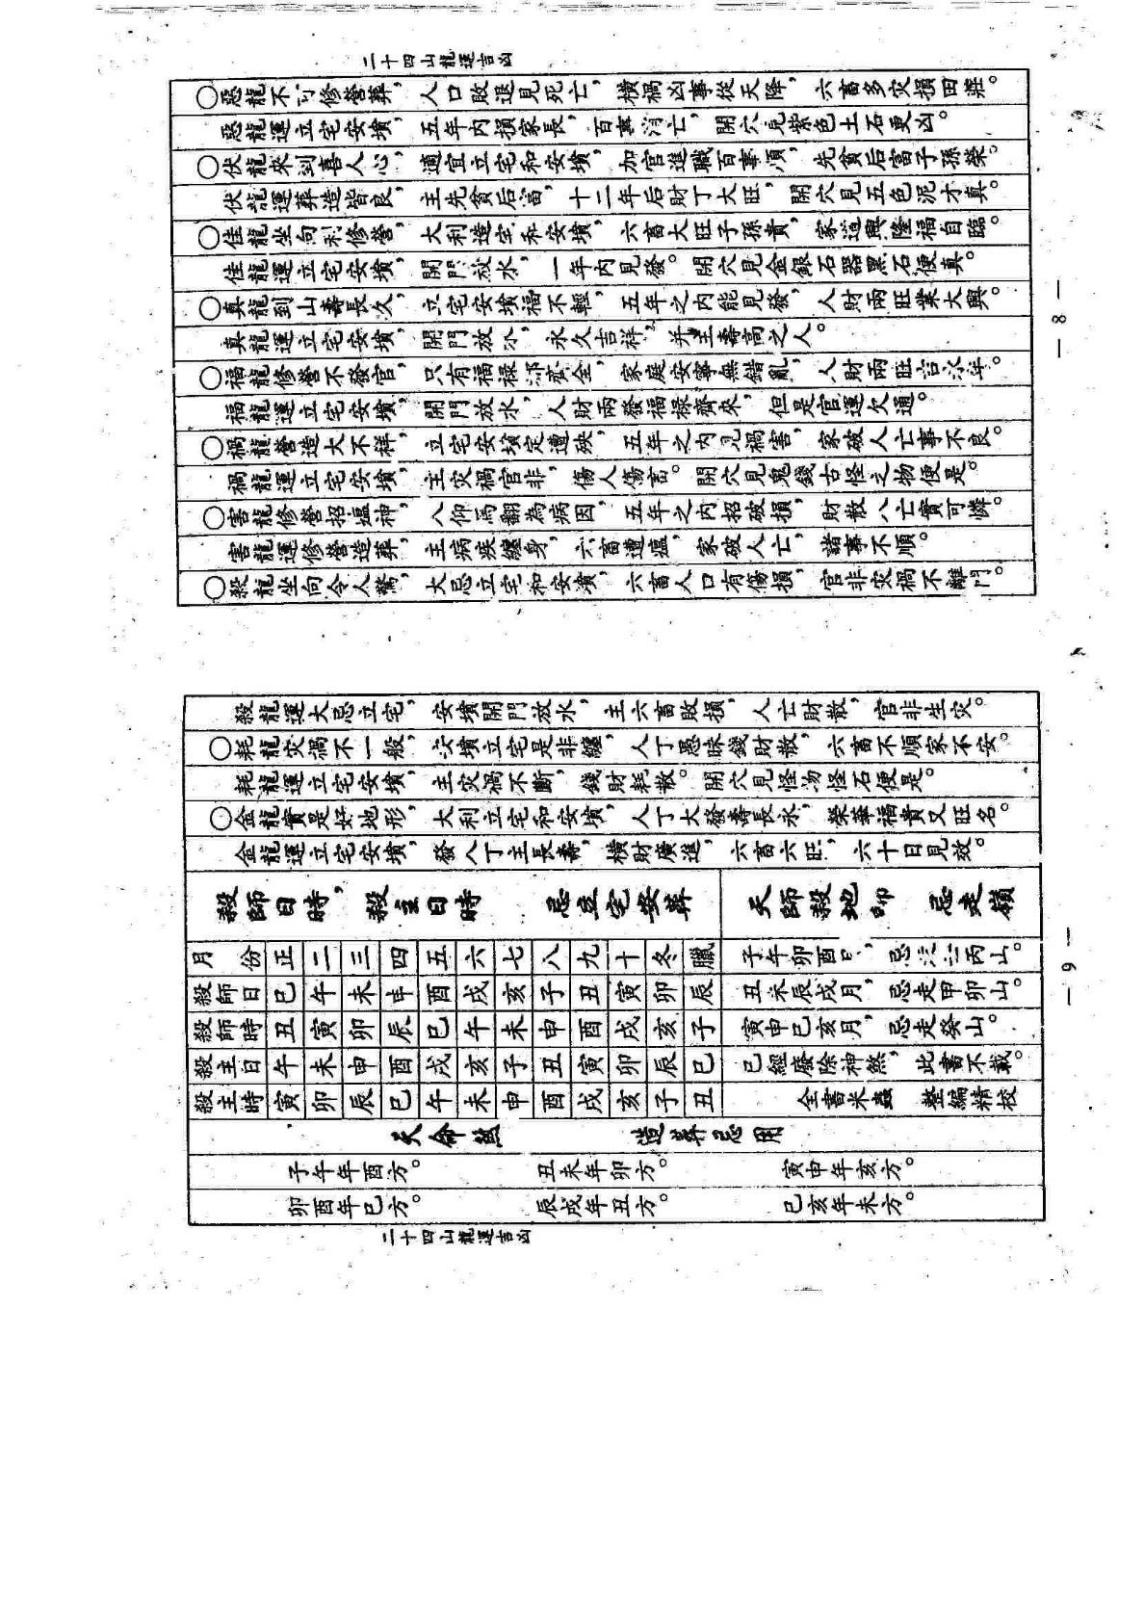 二十四山龍運吉凶
○惡龍不可修營葬，人口敗退見死亡，橫禍凶事從天降，六畜多灾損田莊。
惡龍運立宅安墳，五年內損家長，百事消亡，開穴見紫色土石更凶。
○伏龍來到喜人心，適宜立宅和安墳，加官進職百事順，先貧后富子孫榮。
伏龍運葬造皆良，主先貧后富，十二年后財丁大旺，開穴見五色泥才真。
○佳龍坐向利修營，大利造宅和安墳，六畜大旺子孫貴，家道興隆福自臨。
佳龍運立宅安墳，開門放水，一年內見發。開穴見金銀石器黑石便真。
○真龍到山壽長久，立宅安墳福不輕，五年之內能見發，人財兩旺業大興。
真龍運立宅安墳，開門放水，永久吉祥，并主壽高之人。
○福龍修營不發官，只有福祿齊全，家庭安寧無錯亂，人財兩旺言永年。
福龍運立宅安墳，開門放水，人財兩發福祿齊來，但是官運欠通。
○禍龍營造大不祥，立宅安墳定遭殃，五年之內見禍害，家破人亡事不良。
禍龍運立宅安墳，主灾禍官非，傷人傷畜。開穴見鬼錢古怪之物便是。
○害龍修營招瘟神，人仰馬翻為病因，五年之內招破損，財散人亡實可憐。
害龍運修營造葬，主病疾纏身，六畜遭瘟，家破人亡，諸事不順。
○殺龍坐向令人驚，大忌立宅和安墳，六畜人口有傷損，官非灾禍不離門。
— 8 —
殺龍運大忌立宅，安墳開門放水，主六畜敗損，人亡財散，官非生灾。
○耗龍灾禍不一般，安墳立宅是非纏，人丁愚昧錢財散，六畜不順家不安。
耗龍運立宅安墳，主灾禍不斷，錢財耗散。開穴見怪物怪石便是。
○金龍實是好地形，大利立宅和安墳，人丁大發壽長永，榮華福貴又旺名。
金龍運立宅安墳，發人丁主長壽，橫財廣進，六畜六旺，六十日見效。
殺師日時，殺主日時 忌立宅安葬 天師殺地印 忌走嶺
月份 正 二 三 四 五 六 七 八 九 十 冬 臘 子午卯酉日，忌丙山。
殺師日 巳 午 未 申 酉 戌 亥 子 丑 寅 卯 辰 丑未辰戌月，忌走甲卯山。
殺師時 丑 寅 卯 辰 巳 午 未 申 酉 戌 亥 子 寅申巳亥月，忌走癸山。
殺主日 午 未 申 酉 戌 亥 子 丑 寅 卯 辰 巳 已經廢除神煞，此書不載。
殺主時 寅 卯 辰 巳 午 未 申 酉 戌 亥 子 丑 全書米蟲 整編精校
天命煞 造葬忌用
子午年酉方。 丑未年卯方。 寅申年亥方。
卯酉年巳方。 辰戌年丑方。 巳亥年未方。
二十四山龍運吉凶
— 9 —